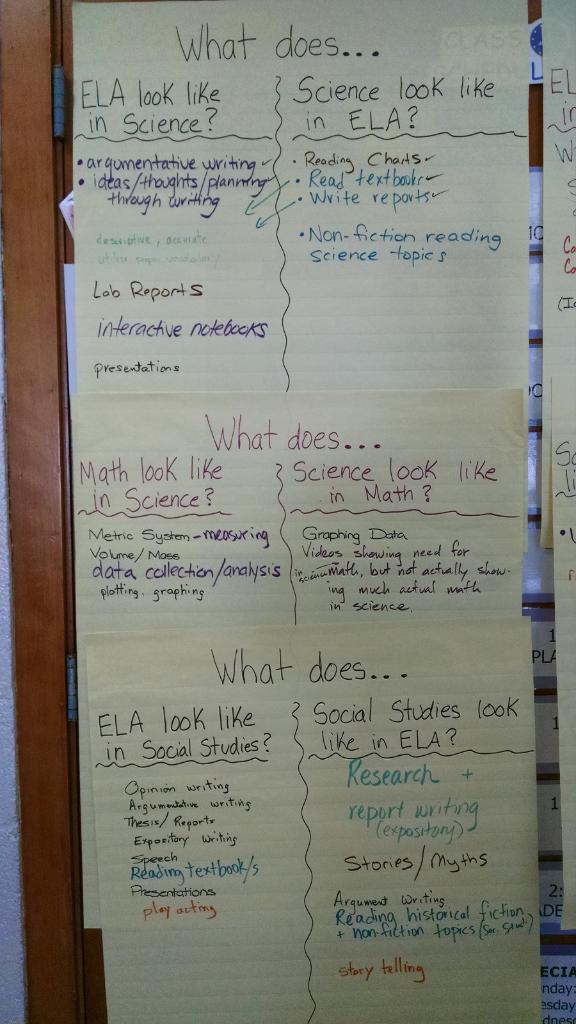 What does...
ELA look like
in Science?
• argumentative writing
• ideas/thoughts/planning
through writing
descriptive, accurate
Lab Reports
interactive notebooks
presentations
Science look like
in ELA?
• Reading Charts
• Read textbooks
• Write reports
• Non-fiction reading
science topics
What does...
Math look like
in Science?
Metric System - measuring
Volume/Mass
data collection/analysis
plotting, graphing
Science look like
in Math?
Graphing Data
Videos showing need for
in science math, but not actually show-
ing much actual math
in science.
What does...
ELA look like
in Social Studies?
Opinion writing
Argumentative writing
Thesis/Reports
Expository Writing
Speech
Reading textbook/s
Presentations
play acting
Social Studies look
like in ELA?
Research +
report writing
(expository)
Stories/Myths
Argument Writing
Reading historical fiction
+ non-fiction topics
story telling